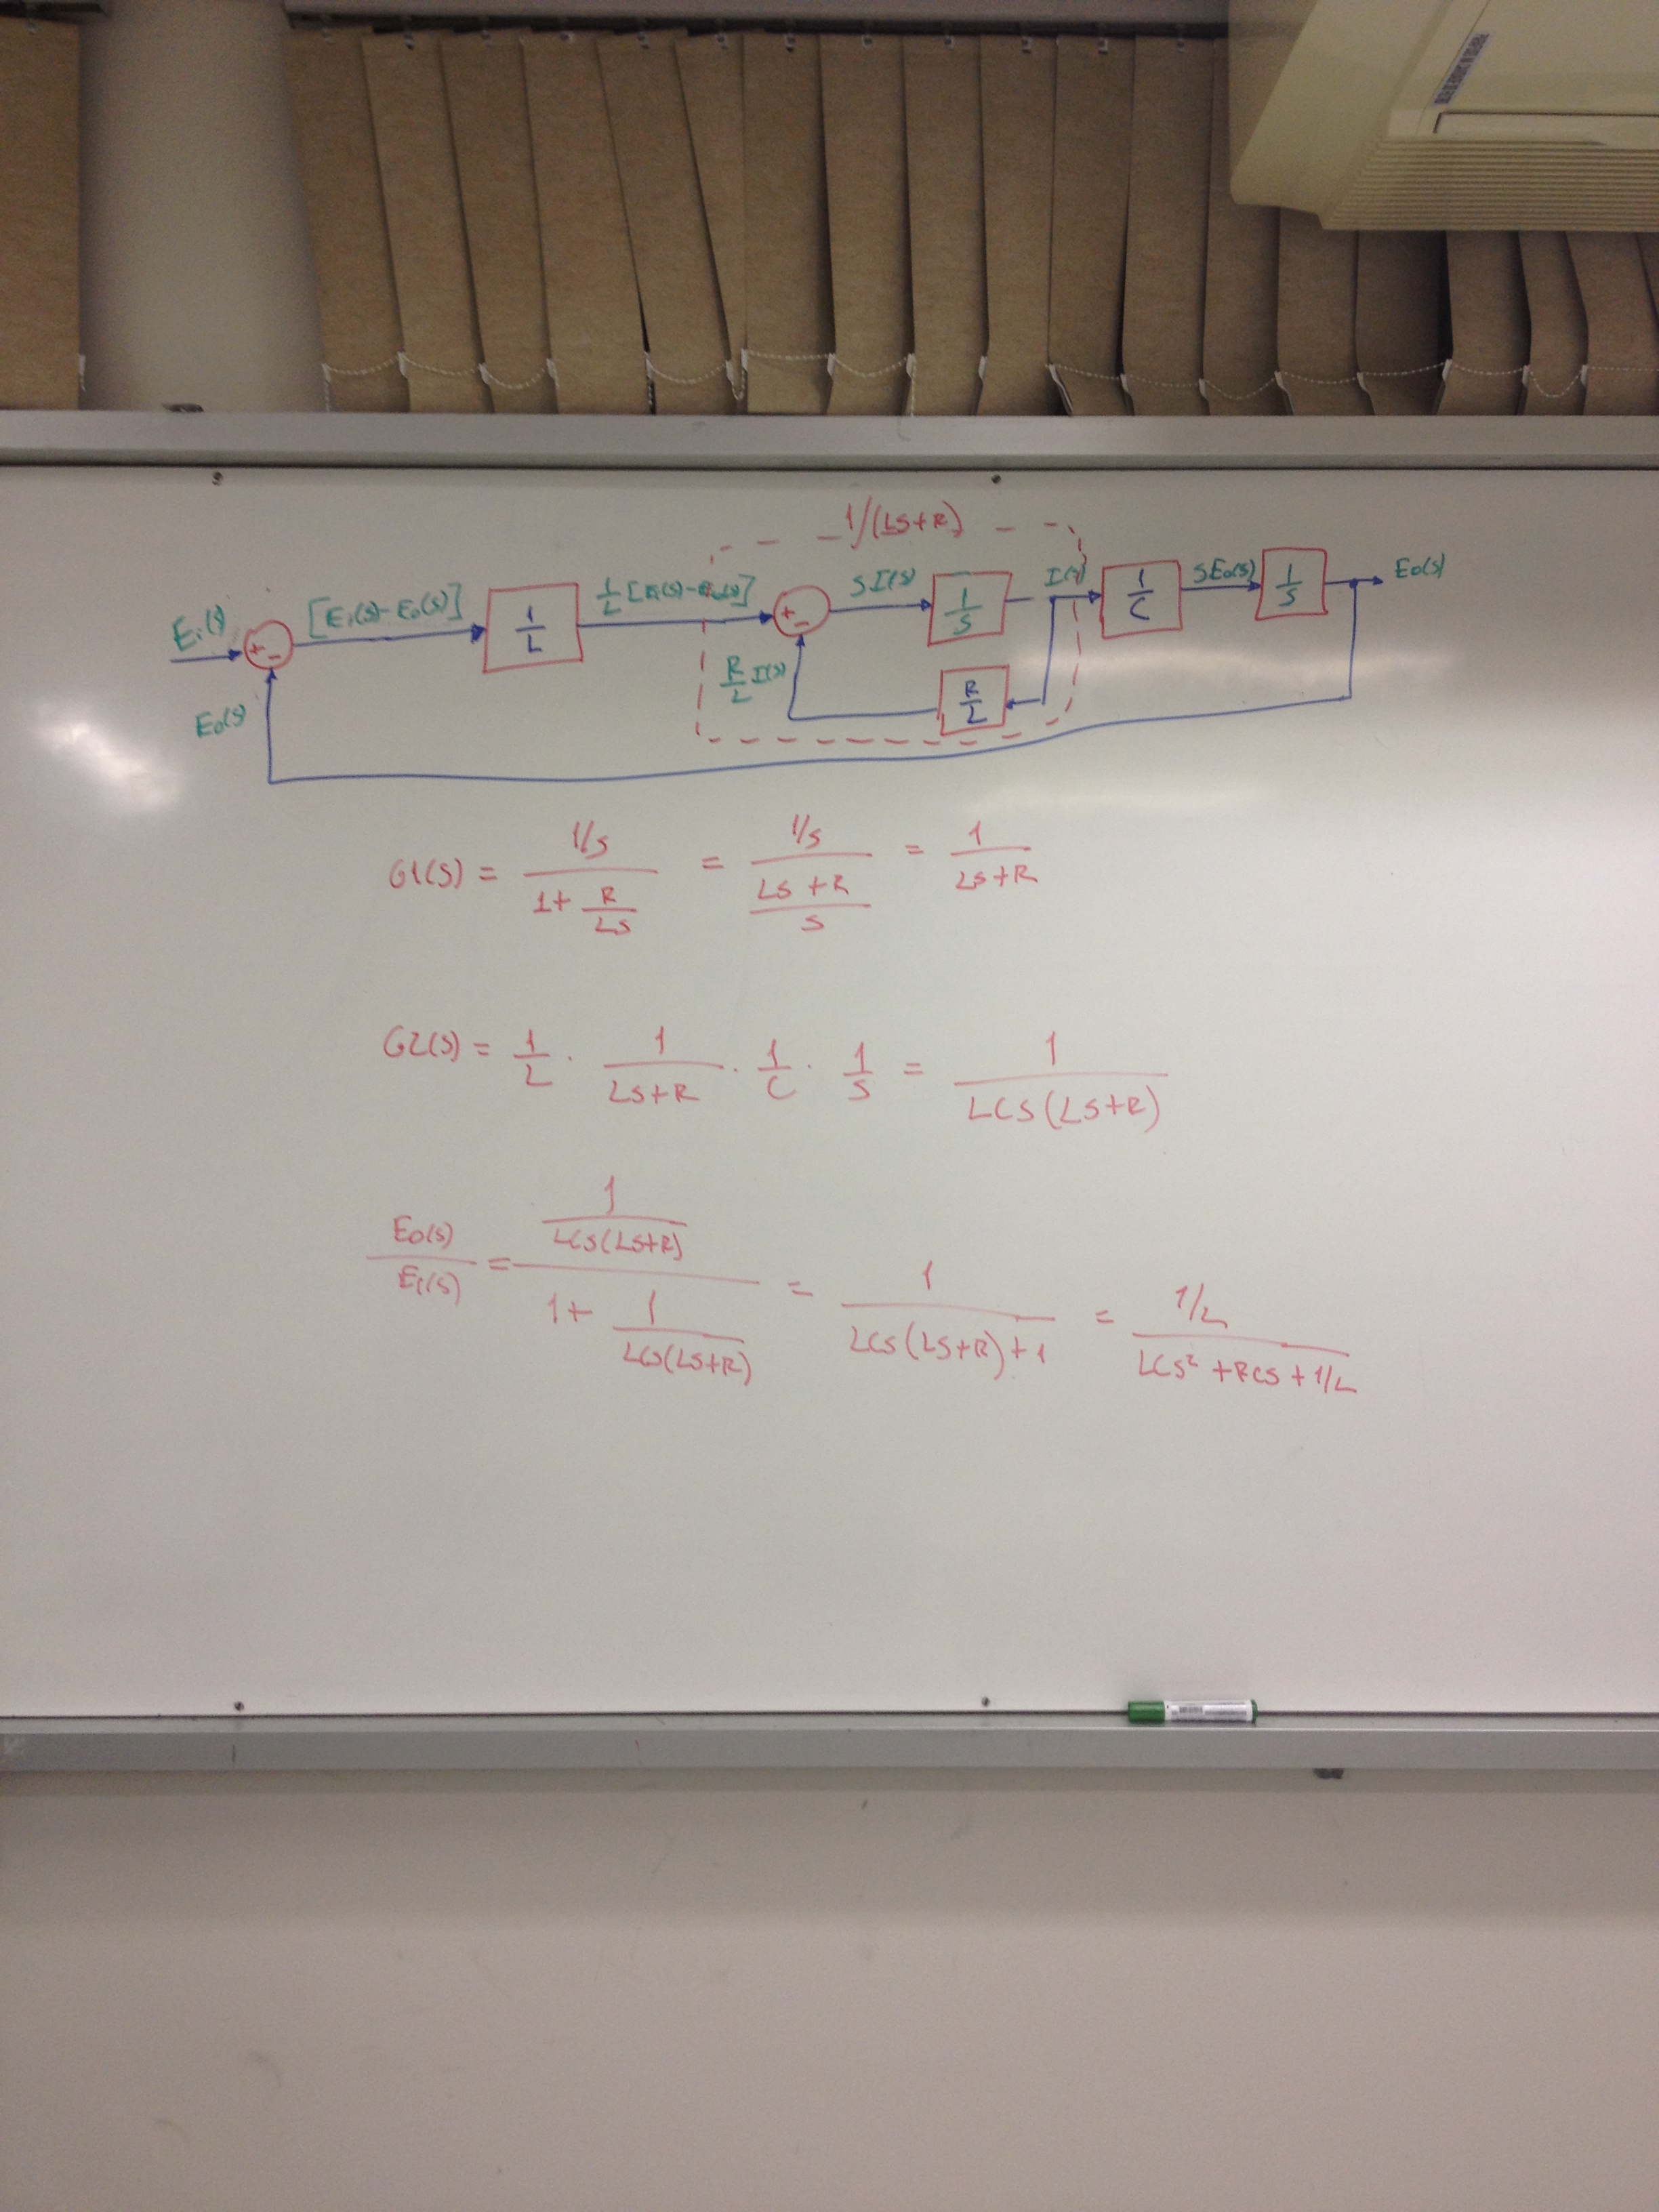 1/(LS+R)
Ei(s) + - [Ei(s)-Eo(s)] 1/L 1/L [Ei(s)-Eo(s)] + - SI(s) 1/S I(s) 1/C SEo(s) 1/S Eo(s)
Eo(s) R/L I(s) R/L
G1(S) = (1/S)/(1+ R/LS) = (1/S)/((LS+R)/S) = 1/(LS+R)
G2(S) = 1/L · 1/(LS+R) · 1/C · 1/S = 1/(LCS(LS+R))
Eo(s)/Ei(s) = (1/(LCS(LS+R)))/(1+ 1/(LCS(LS+R))) = 1/(LCS(LS+R)+1) = (1/L)/(LCS²+RCS+1/L)